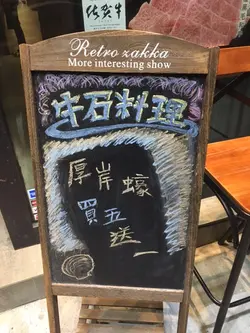 佐賀牛
Retro zakka
More interesting show
牛石料理
厚岸蠔
買五送一